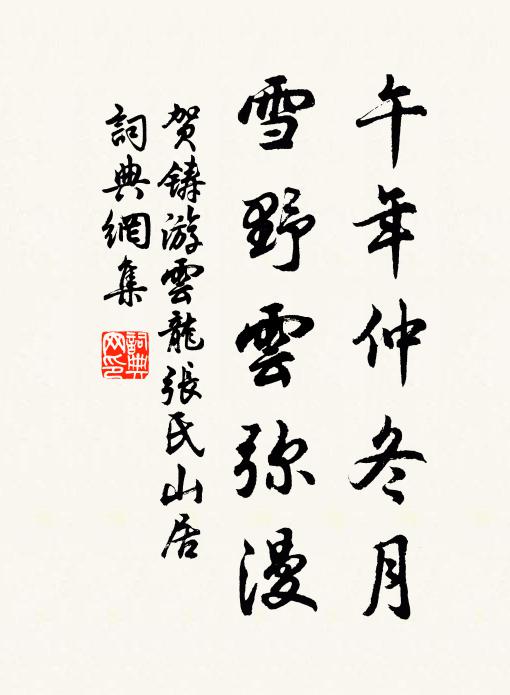 午年仲冬月
雪野雲弥漫
贺鑄游雲龍張氏山居
詞典網集
詞典網印